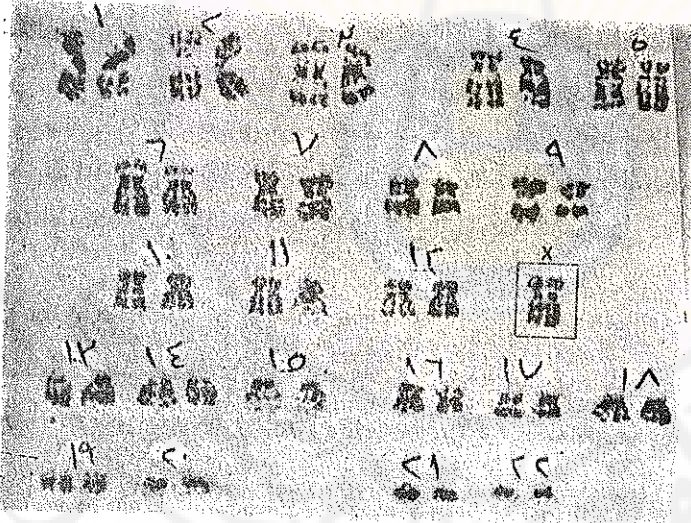 ١ ٢ ٣ ٤ ٥
٦ ٧ ٨ ٩
١٠ ١١ ١٢ X
١٣ ١٤ ١٥ ١٦ ١٧ ١٨
١٩ ٢٠ ٢١ ٢٢